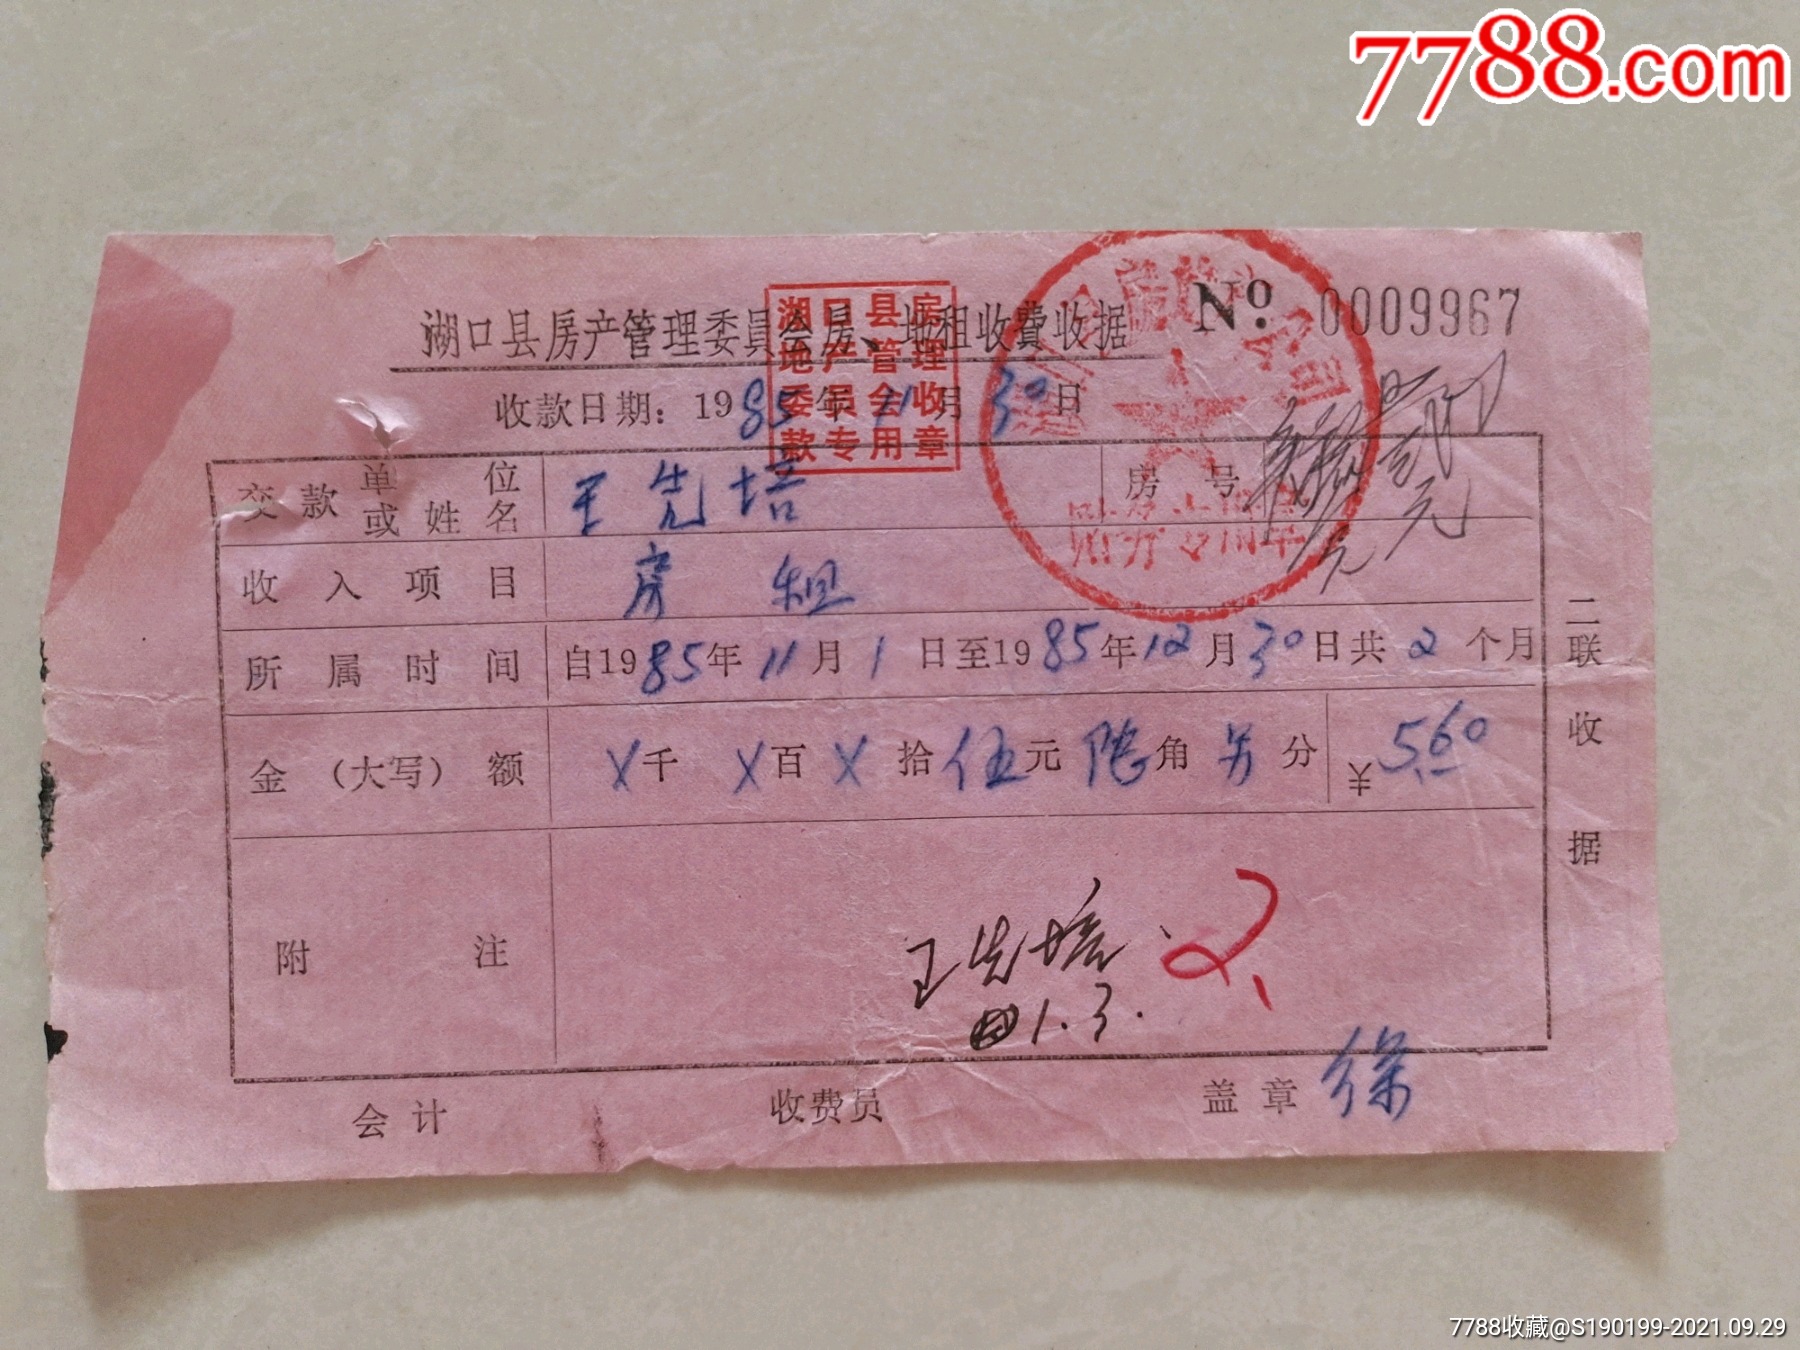 7788.com
湖口县房产管理委員会房、地租收費收据 № 0009967
湖口县房
地产管理
委员会收
款专用章
收款日期：1985年11月30日
交款单位或姓名 王先培 房号
收入项目 房租
所属时间 自1985年11月1日至1985年12月30日共2个月
金（大写）额 X千X百X拾伍元陆角另分 ¥5.60
附注
王先培
1.3.
2.
二联收据
会计 收费员 盖章 徐
7788收藏@S190199-2021.09.29